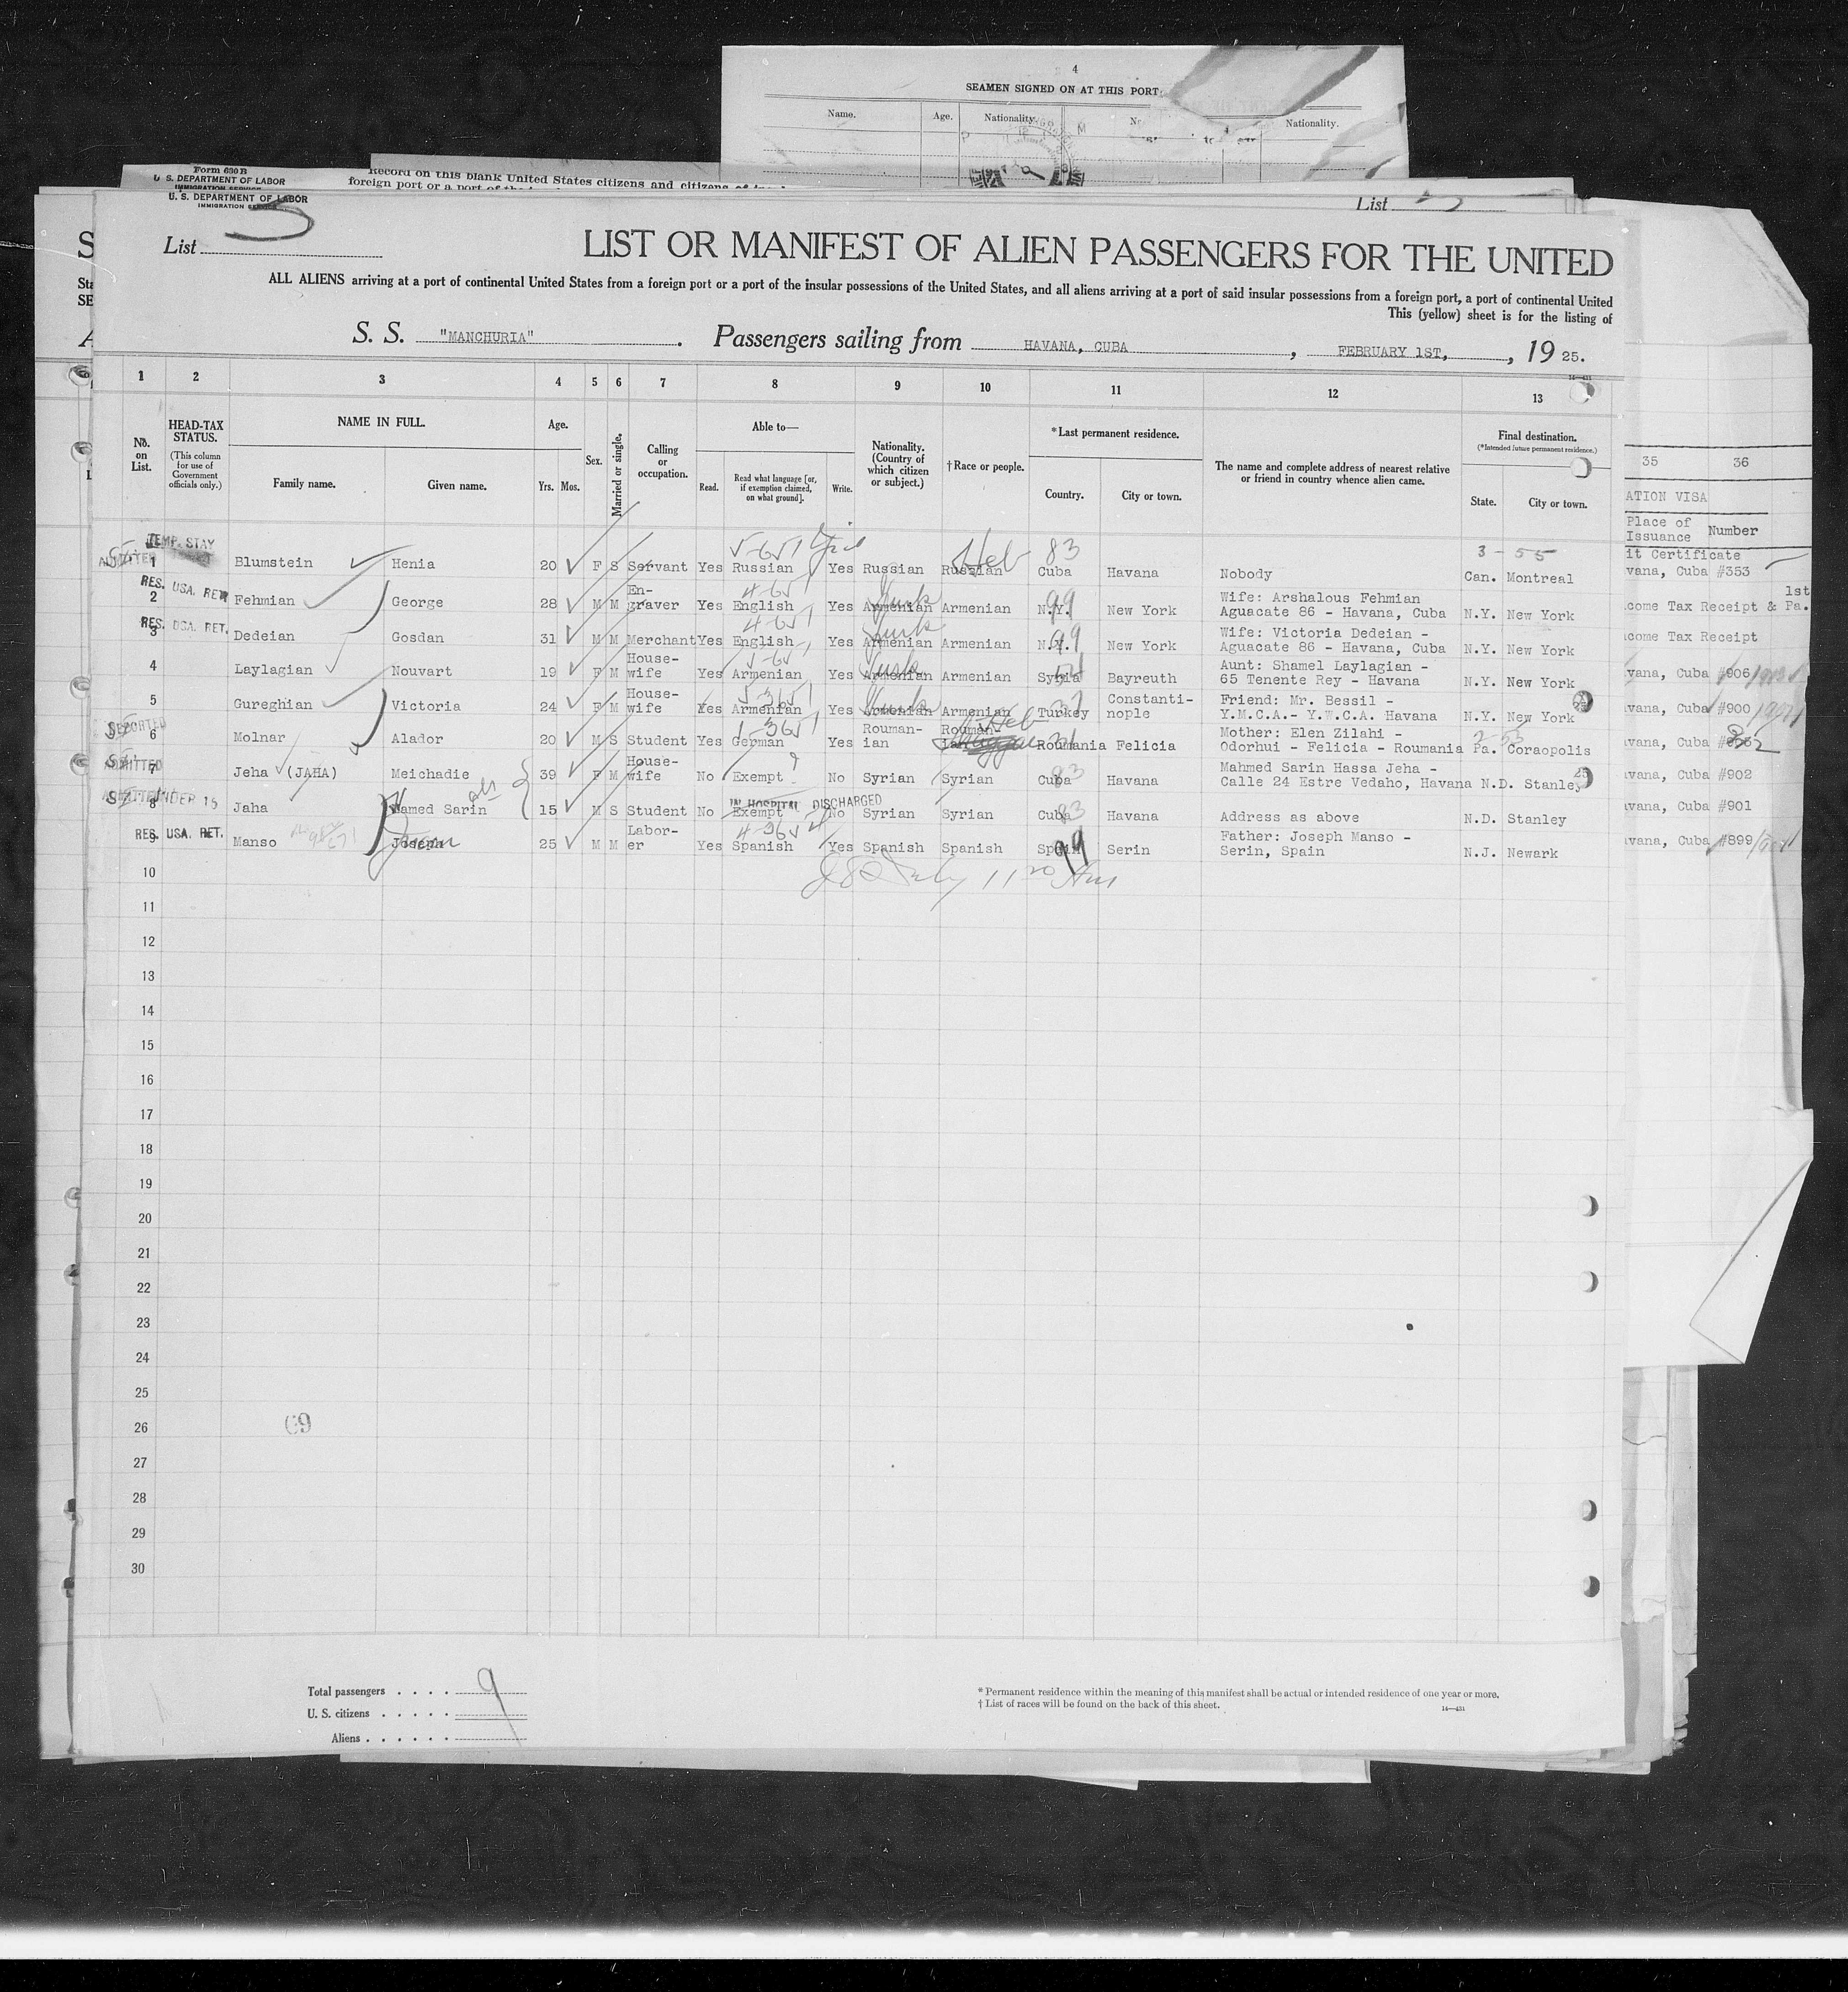 4
SEAMEN SIGNED ON AT THIS PORT
Name. Age. Nationality. Nationality.
Form 630 B
U. S. DEPARTMENT OF LABOR
IMMIGRATION SERVICE
Record on this blank United States citizens and citizens of
foreign port or a port of the
List
U. S. DEPARTMENT OF LABOR
IMMIGRATION SERVICE
List 5
LIST OR MANIFEST OF ALIEN PASSENGERS FOR THE UNITED
ALL ALIENS arriving at a port of continental United States from a foreign port or a port of the insular possessions of the United States, and all aliens arriving at a port of said insular possessions from a foreign port, a port of continental United
This (yellow) sheet is for the listing of
S. S. "MANCHURIA". Passengers sailing from HAVANA, CUBA, FEBRUARY 1ST, , 19 25.
1 2 3 4 5 6 7 8 9 10 11 12 13
No. on List.
HEAD-TAX STATUS.
(This column for use of Government officials only.)
NAME IN FULL.
Family name. Given name.
Age.
Yrs. Mos.
Sex.
Married or single.
Calling or occupation.
Able to—
Read. Read what language [or, if exemption claimed, on what ground]. Write.
Nationality. (Country of which citizen or subject.)
† Race or people.
* Last permanent residence.
Country. City or town.
The name and complete address of nearest relative or friend in country whence alien came.
Final destination.
(*Intended future permanent residence.)
State. City or town.
35 36
ATION VISA
Place of Issuance Number
TEMP. STAY
ADMITTED
1 Blumstein Henia 20 F S Servant Yes Russian Yes Russian Russian Heb Cuba 83 Havana Nobody 3-55 Can. Montreal
it Certificate
vana, Cuba #353
RES. USA. RET.
2 Fehmian George 28 M M En-graver Yes English Yes Armenian Turk Armenian N.Y. 99 New York Wife: Arshalous Fehmian
Aguacate 86 - Havana, Cuba N.Y. New York
1st
come Tax Receipt & Pa.
RES. USA. RET.
3 Dedeian Gosdan 31 M M Merchant Yes English Yes Armenian Turk Armenian N.Y. 99 New York Wife: Victoria Dedeian -
Aguacate 86 - Havana, Cuba N.Y. New York
come Tax Receipt
4 Laylagian Nouvart 19 F M House-wife Yes Armenian Yes Armenian Turk Armenian Syria Bayreuth Aunt: Shamel Laylagian -
65 Tenente Rey - Havana N.Y. New York
vana, Cuba #906
5 Gureghian Victoria 24 F M House-wife Yes Armenian Yes Armenian Turk Armenian Turkey Constanti-nople Friend: Mr. Bessil -
Y.M.C.A.- Y.W.C.A. Havana N.Y. New York
vana, Cuba #900
DEPORTED
6 Molnar Alador 20 M S Student Yes German Yes Rouman-ian Rouman-ian Heb Roumania Felicia Mother: Elen Zilahi -
Odorhui - Felicia - Roumania 2-53 Pa. Coraopolis
vana, Cuba
ADMITTED
7 Jeha (JAHA) Meichadie 39 F M House-wife No Exempt No Syrian Syrian Cuba 83 Havana Mahmed Sarin Hassa Jeha -
Calle 24 Estre Vedaho, Havana N.D. Stanley
vana, Cuba #902
8 Jaha Mamed Sarin 15 M S Student No Exempt No Syrian Syrian Cuba 83 Havana Address as above N.D. Stanley
vana, Cuba #901
IN HOSPITAL DISCHARGED
RES. USA. RET.
9 Manso Joseph Juan 25 M M Labor-er Yes Spanish Yes Spanish Spanish Spain 99 Serin Father: Joseph Manso -
Serin, Spain N.J. Newark
vana, Cuba #899
10
11
12
13
14
15
16
17
18
19
20
21
22
23
24
25
26
27
28
29
30
Total passengers . . . . 9
U. S. citizens . . . . .
Aliens . . . . . .
* Permanent residence within the meaning of this manifest shall be actual or intended residence of one year or more.
† List of races will be found on the back of this sheet.
14—431